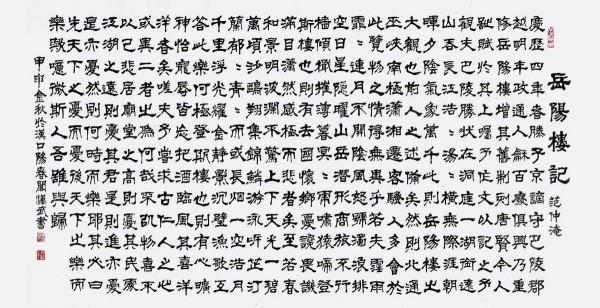 岳陽樓記 范仲淹
慶歷四年春滕子京謫守巴陵郡
越明年政通人和百廢俱興乃重
修岳陽樓增其舊制刻唐賢今人
詩賦於其上屬予作文以記之予
觀夫巴陵勝狀在洞庭一湖銜遠
山吞長江浩浩湯湯橫無際涯朝
暉夕陰氣象萬千此則岳陽樓之
大觀也前人之述備矣然則北通
巫峽南極瀟湘遷客騷人多會於
此覽物之情得無異乎若夫霪雨
霏霏連月不開陰風怒號濁浪排
空日星隱曜山岳潛形商旅不行
檣傾楫摧薄暮冥冥虎嘯猿啼登
斯樓也則有去國懷鄉憂讒畏譏
滿目蕭然感極而悲者矣至若春
和景明波瀾不驚上下天光一碧
萬頃沙鷗翔集錦鱗游泳岸芷汀
蘭郁郁青青而或長煙一空皓月
千里浮光耀金靜影沉璧漁歌互
答此樂何極登斯樓也則有心曠
神怡寵辱皆忘把酒臨風其喜洋
洋者矣嗟夫予嘗求古仁人之心
或異二者之為何哉不以物喜不
以己悲居廟堂之高則憂其民處
江湖之遠則憂其君是則進亦憂
退亦憂然則何時而樂耶其必曰
先天下之憂而憂後天下之樂而
樂歟噫微斯人吾誰與歸
甲申金秋於漢口陽春閣 武書